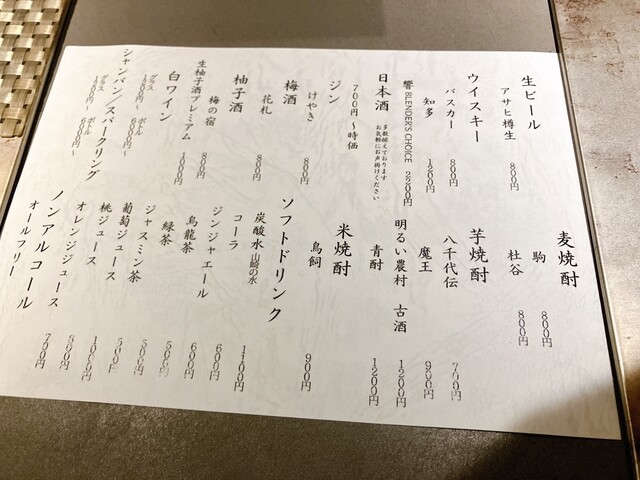 生ビール
アサヒ樽生 800円
ウイスキー
バスカー 800円
知多 1200円
響 BLENDER'S CHOICE 2200円
日本酒
多数揃えております
お気軽にお声掛けください
700円〜時価
ジン
けやき 800円
梅酒
花札 800円
柚子酒
梅の宿 800円
生柚子酒プレミアム 1000円
白ワイン
グラス 1200円〜 ボトル 6000円〜
シャンパン/スパークリング
グラス 1200円〜 ボトル 6000円〜
麦焼酎
駒 800円
杜谷 800円
芋焼酎
八千代伝 700円
魔王 900円
明るい農村 古酒 1200円
青酎 1200円
米焼酎
鳥飼 900円
ソフトドリンク
炭酸水 山崎の水 1100円
コーラ 600円
ジンジャエール 600円
烏龍茶 500円
緑茶 500円
ジャスミン茶 500円
葡萄ジュース 1000円
桃ジュース
オレンジジュース
ノンアルコール
オールフリー 700円